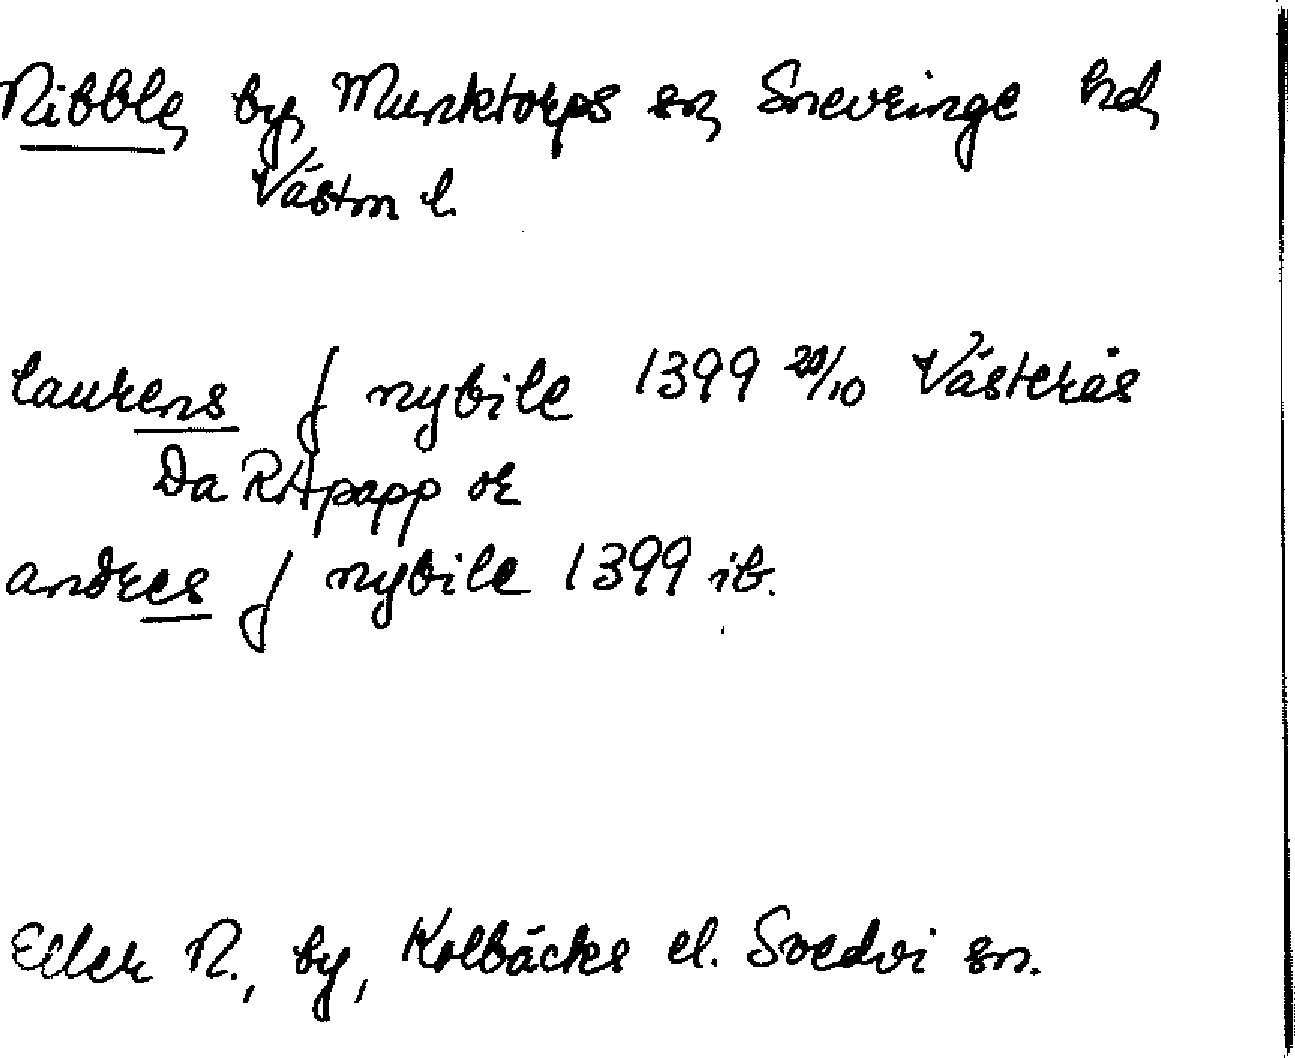 Nibble, by, Munktorps sn, Snevringe hd,
Västm l.
laurens j nybile 1399 20/10 Västerås
Da RApapp or
andres j nybile 1399 ib.
Eller N., by, Kolbäcks el. Svedvi sn.